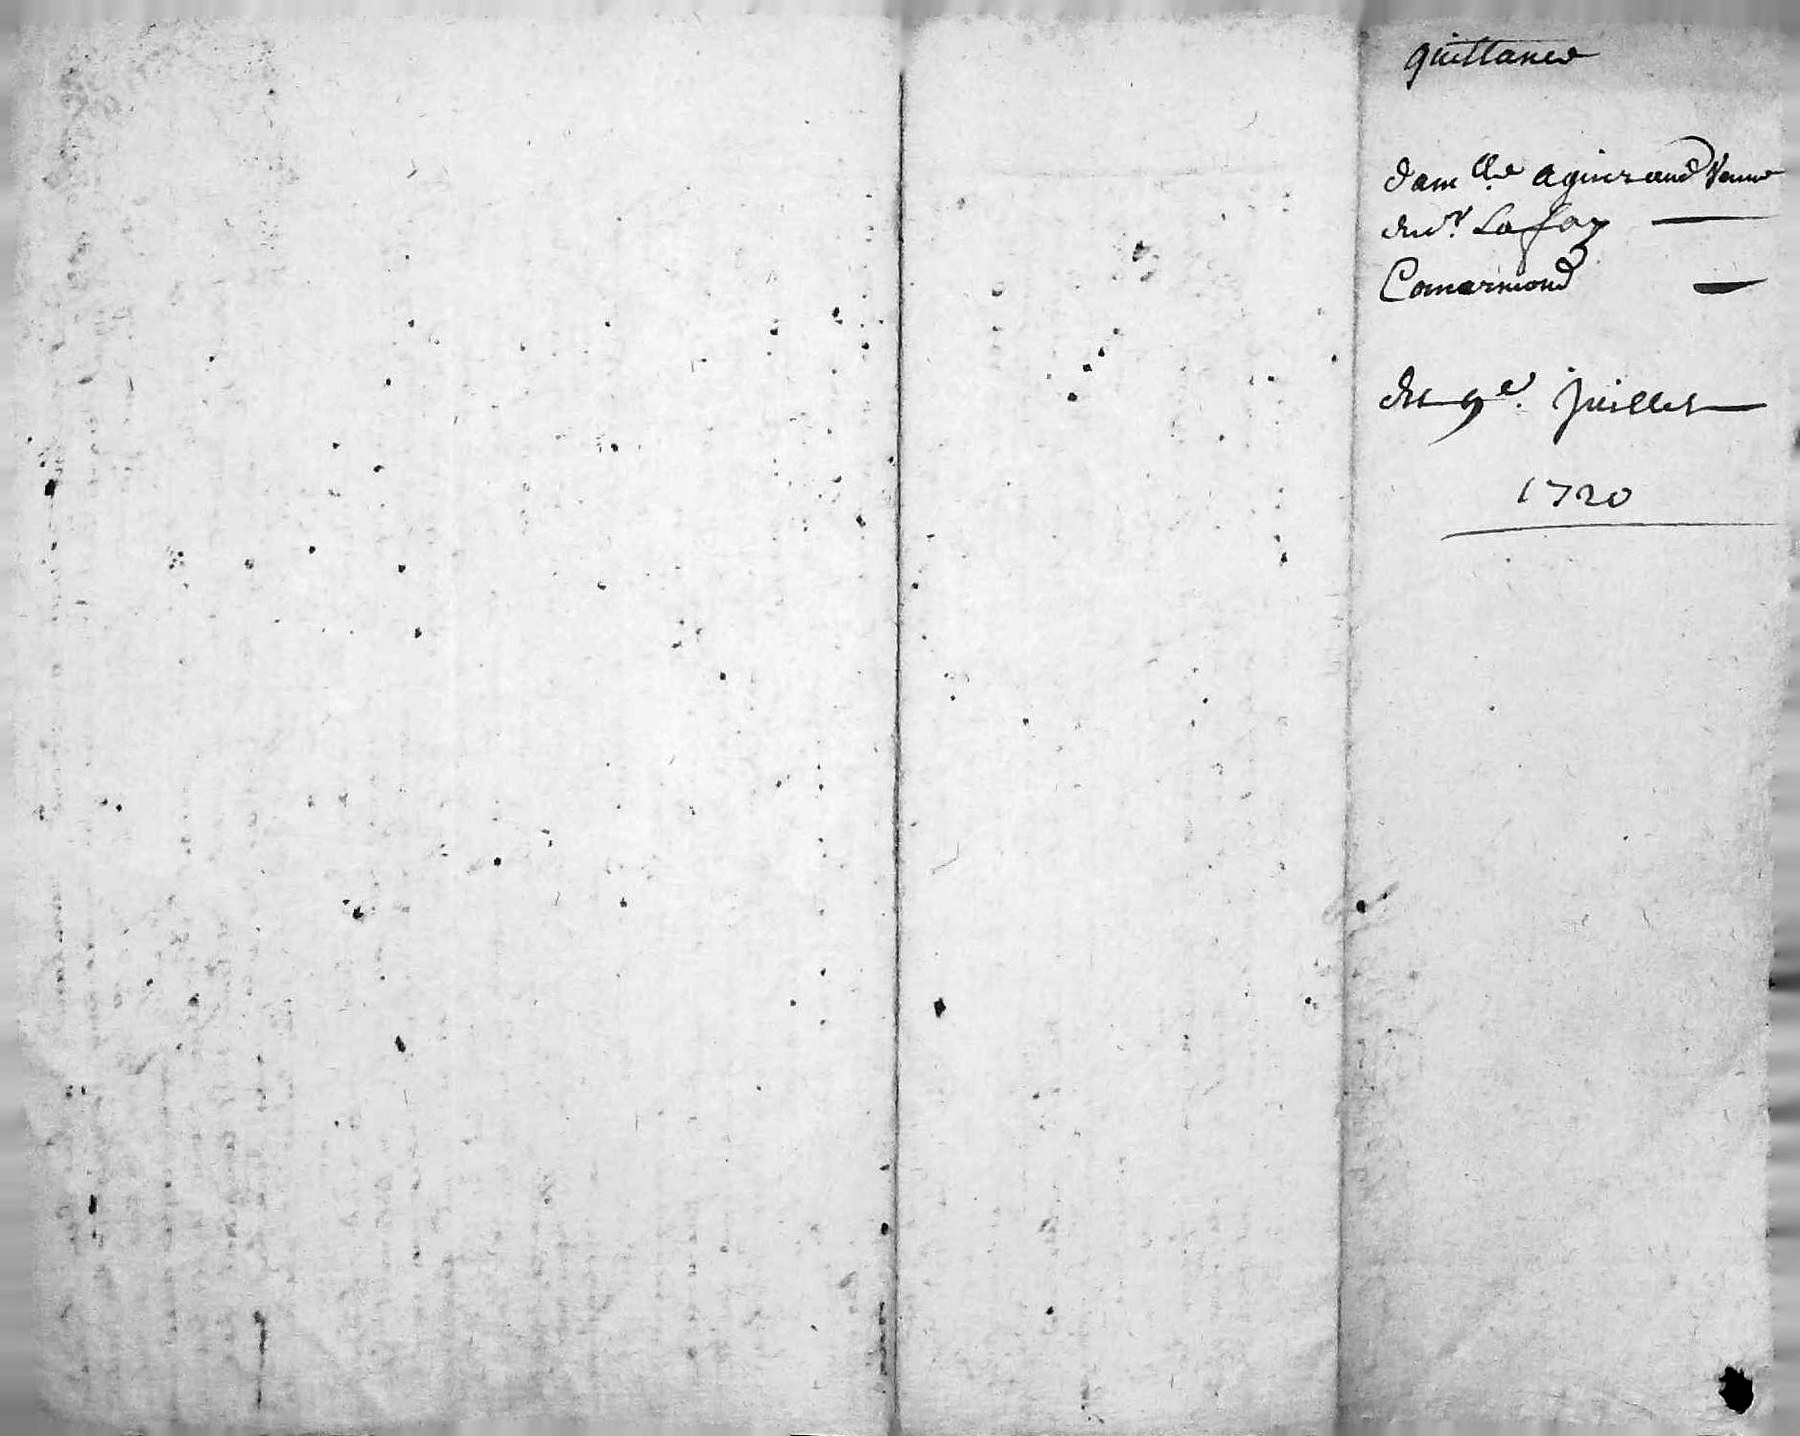 quittance
dam.lle aguiraud Veuve
du Sr. Lafay
Comarmond
du 9e. Juillet
1720